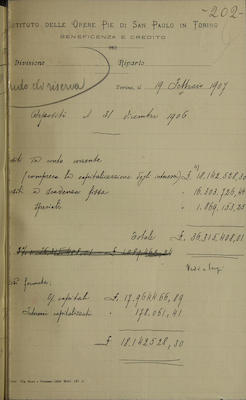 -202-
ISTITUTO DELLE OPERE PIE DI SAN PAOLO IN TORINO
BENEFICENZA E CREDITO
Divisione Riparto
fondo di riserva
Torino, il 19 Febbraio 1907
Depositi al 31 Dicembre 1906
in conto corrente
(compresa la capitalizzazione degli interessi) £. 18.142.528,30
a scadenza fissa " 16.303.726,46
speciali " 1.869.153,25
Totale £. 36.315.408,01
formata:
Capitali £. 17.964.466,89
Interessi capitalizzati " 178.061,41
£ 18.142.528,30